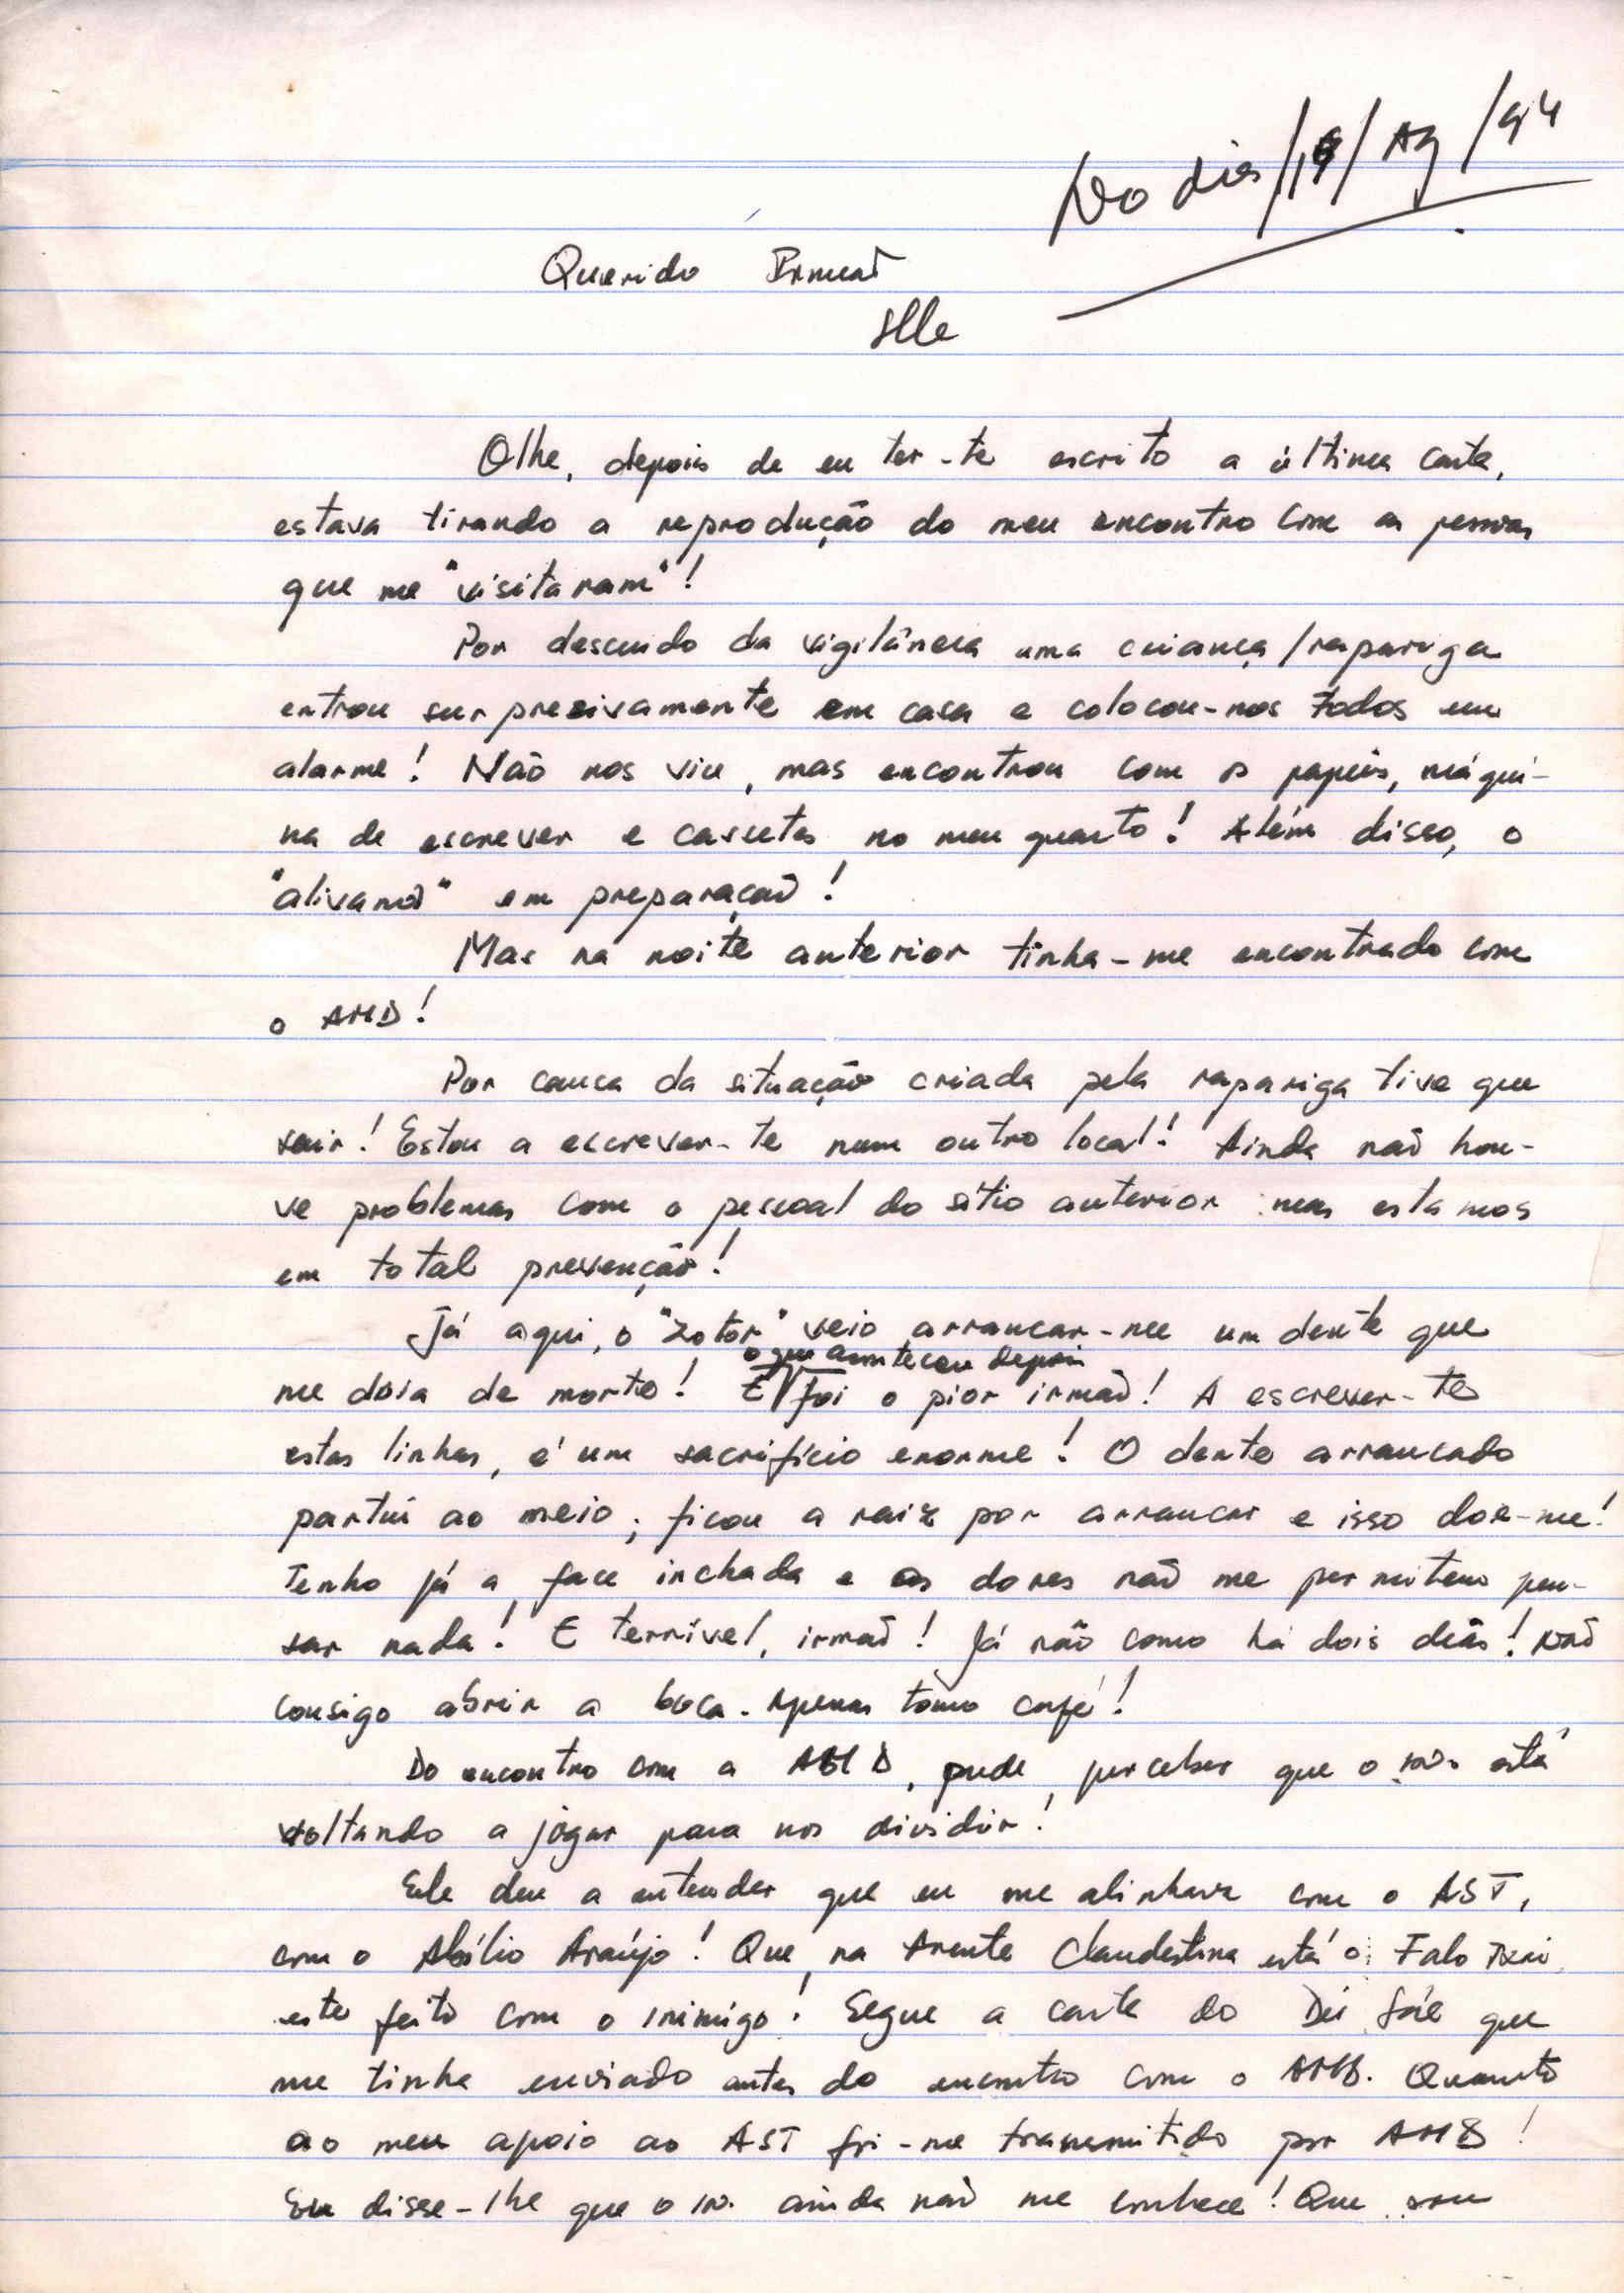 No dia /19/Ag/94
Querido Irmão
Olhe, depois de eu ter-te escrito a última carta,
estava tirando a reprodução do meu encontro com as pessoas
que me "visitaram"!
Por descuido da vigilância uma criança/rapariga
entrou surpresivamente em casa e colocou-nos todos em
alarme! Não nos viu, mas encontrou com os papéis, máqui-
na de escrever e cassetes no meu quarto! Além disso, o
em preparação!
Mas na noite anterior tinha-me encontrado com
o AMD!
Por causa da situação criada pela rapariga tive que
sair! Estou a escrever-te num outro local! Ainda não hou-
ve problemas com o pessoal do sítio anterior mas estamos
em total prevenção!
Já aqui, o "Zotor" veio arrancar-me um dente que
o que aconteceu depois
me doia de morte! E foi o pior irmão! A escrever-te
estas linhas, é um sacrifício enorme! O dente arrancado
partiu ao meio; ficou a raiz por arrancar e isso doe-me!
Tenho já a face inchada e as dores não me permitem pen-
sar nada! E terrível, irmão! Já não como há dois dias! Não
consigo abrir a boca. Apenas tomo café!
Do encontro com a AMD, pude perceber que o está
voltando a jogar para nos dividir!
Ele deu a entender que eu me alinhava com o AST,
com o Abílio Araújo! Que na Frente Clandestina está o Falo Txai
este feito com o inimigo! Segue a carta do que
me tinha enviado antes do encontro com o AMD. Quanto
ao meu apoio ao AST foi-me transmitido por AMD!
Eu disse-lhe que o in. ainda não me conhece! Que sou